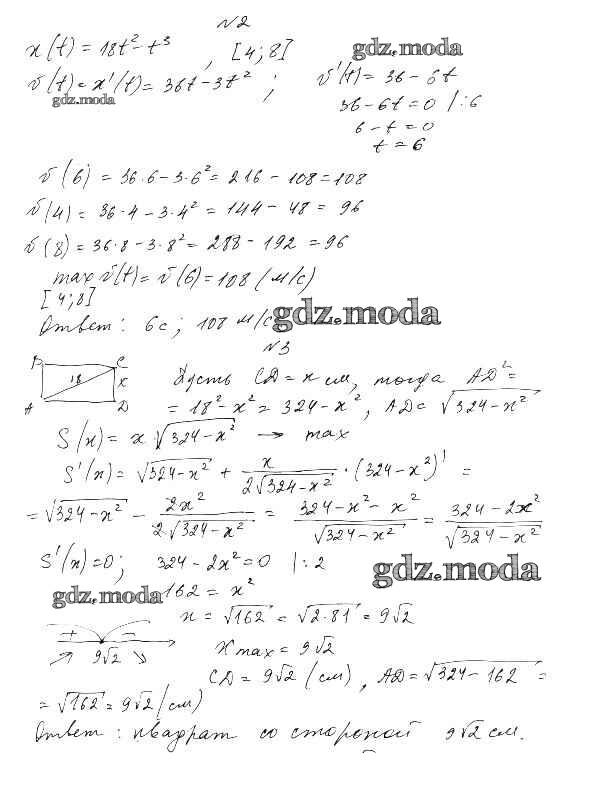 N2
x(t) = 18t² - t³, [4; 8] gdz.moda
v(t) = x'(t) = 36t - 3t²; v'(t) = 36 - 6t
gdz.moda
36 - 6t = 0 | : 6
6 - t = 0
t = 6
v(6) = 36·6 - 3·6² = 216 - 108 = 108
v(4) = 36·4 - 3·4² = 144 - 48 = 96
v(8) = 36·8 - 3·8² = 288 - 192 = 96
max v(t) = v(6) = 108 (м/с)
[4; 8]
Ответ: 6с; 108 м/с gdz.moda
N3
B C
18 x
A D
Пусть CD = x см, тогда AD² =
= 18² - x² = 324 - x², AD = √(324 - x²)
S(x) = x √(324 - x²) → max
S'(x) = √(324 - x²) + x/(2√(324 - x²)) · (324 - x²)' =
= √(324 - x²) - 2x²/(2√(324 - x²)) = (324 - x² - x²)/√(324 - x²) = (324 - 2x²)/√(324 - x²)
S'(x) = 0; 324 - 2x² = 0 | : 2
gdz.moda
gdz.moda 162 = x²
x = √162 = √(2·81) = 9√2
+ -
↗ 9√2 ↘ x max = 9√2
CD = 9√2 (см), AD = √(324 - 162) =
= √162 = 9√2 (см)
Ответ: квадрат со стороной 9√2 см.